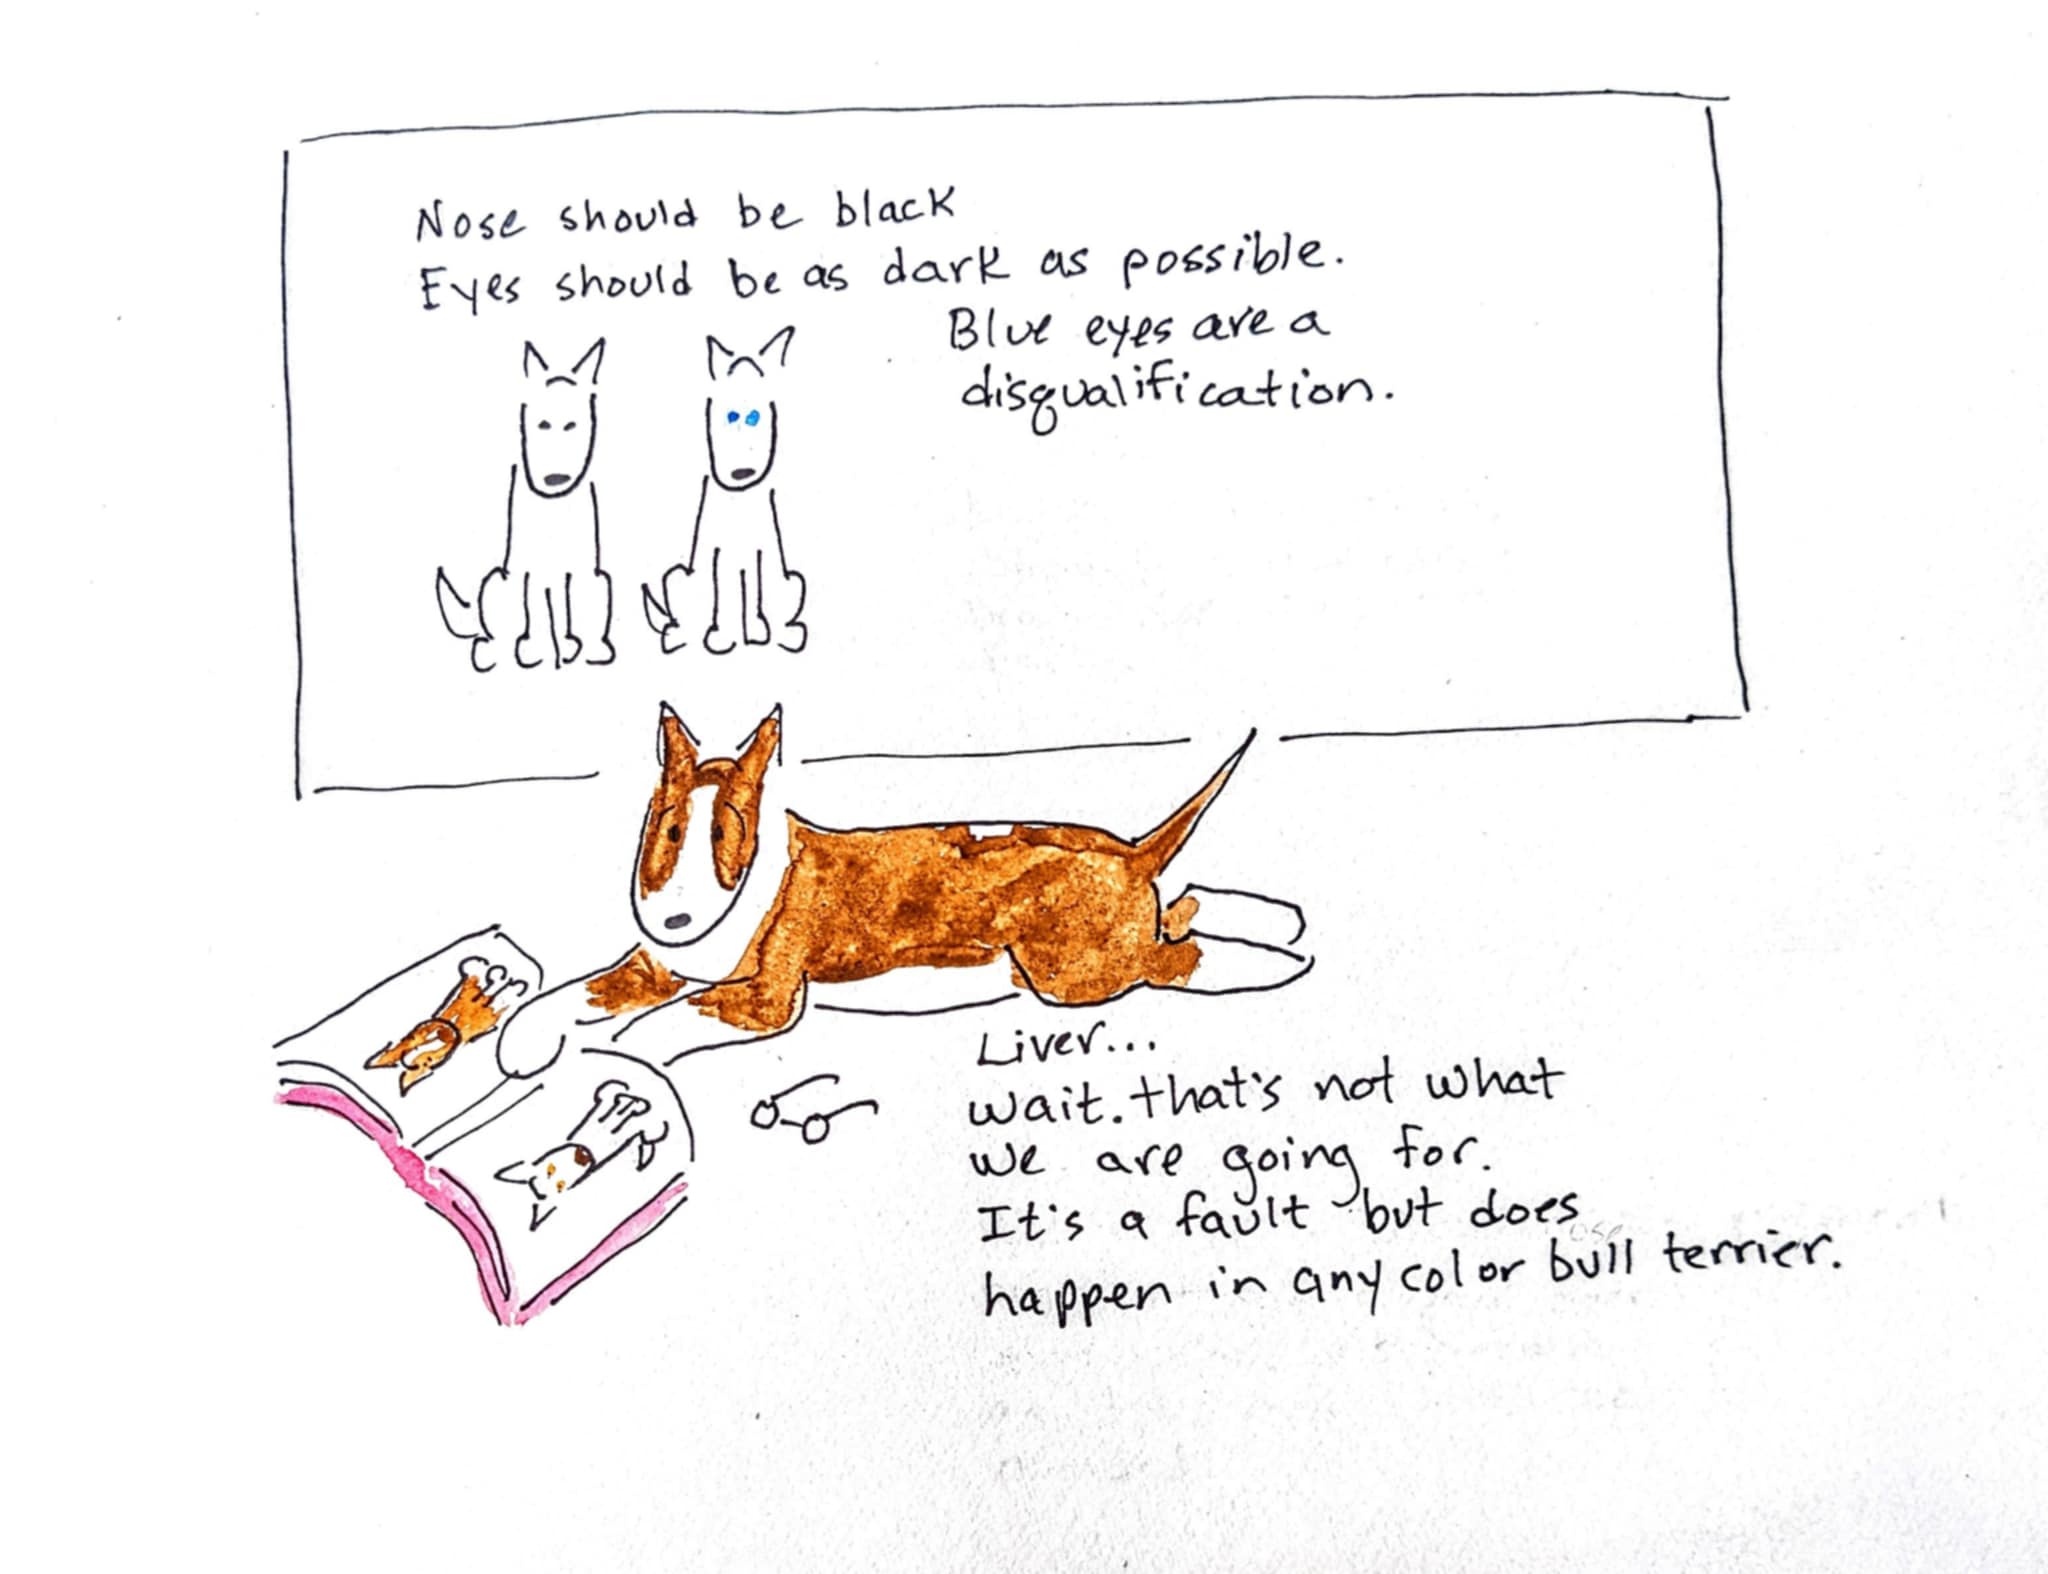 Nose should be black
Eyes should be as dark as possible.
Blue eyes are a
disqualification.
Liver...
wait. that's not what
we are going for.
It's a fault but does
happen in any color bull terrier.